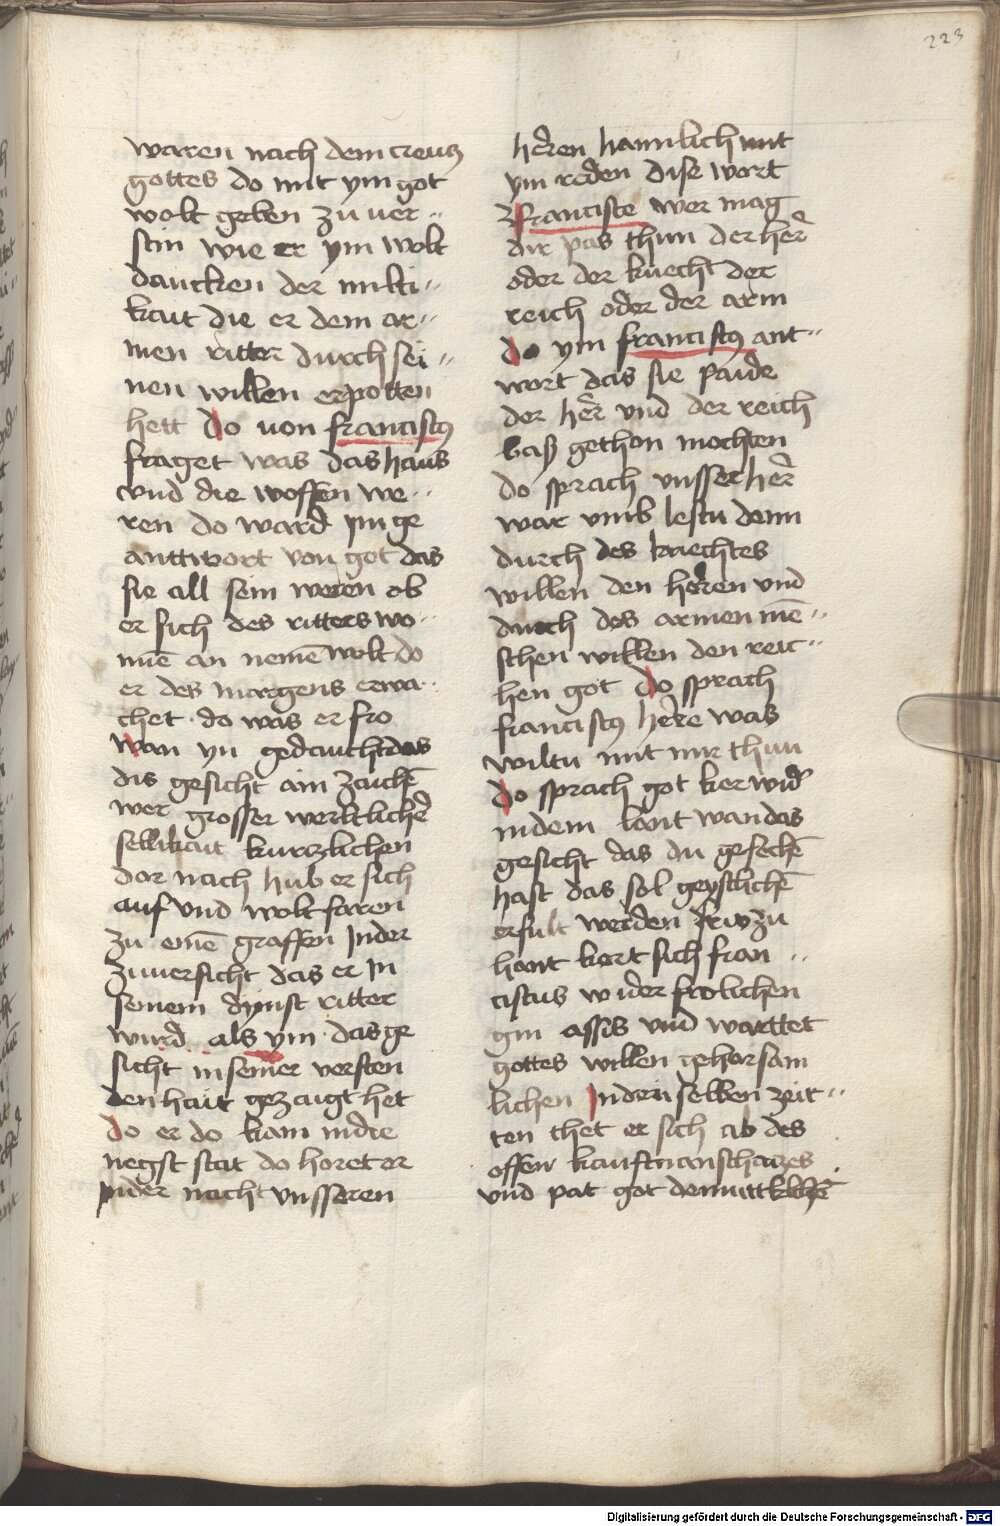 223
waren nach dem creucz
gottes do mit ym got
wolt geben zu uer··
stin wie er ym wolt
dancken der milti··
kait die er dem ar··
men ritter durch sei··
nen willen erpotten
hett do von franciscus
fraget was das haus
vnd die woffen we··
ren do ward im ge
anttwort von got das
sie all sein weren ob
er sich des ritters wo··
mē an nemē wolt do
er des margens erwa··
chet do was er fro
wan yn gedaucht das
dis gesicht ain zaichē
wer grosser werltlichē
sellikait kurczlichen
dor nach hub er sich
auf vnd wolt faren
zu einē graffen Jn der
zuuersicht das er in
seinem dynst ritter
wurd als ym das ge
sicht in seiner versten
denhait gezaugt het
do er do kam in die
negst stat do horet er
in der nacht vnsseren
herren hamlich mit
ym reden dise wort
Francisce wer mag
dir pas thun der her
oder der knecht der
reich oder der arm
do ym franciscus ant··
wort das sie paide
der her vnd der reich
baß gethon mochten
do sprach vnsser her
war vmb lestu denn
durch des knechtes
willen den heren vnd
durch des armen mē··
schen willen den reic··
hen got do sprach
franciscus here was
wiltu mit mir thun
do sprach got ker wid
in dein lant wan das
gesicht das du gesechē
hast das sol geystlichē
erfult werden frw zu
hant kert sich fran··
ciscus wider frolichen
gin assis vnd warttet
gottes willen gehorsam
lichen Jn den selben zeit··
ten thet er sich ab des
offen kaufmanschaczes
vnd pat got
Digitalisierung gefördert durch die Deutsche Forschungsgemeinschaft - DFG